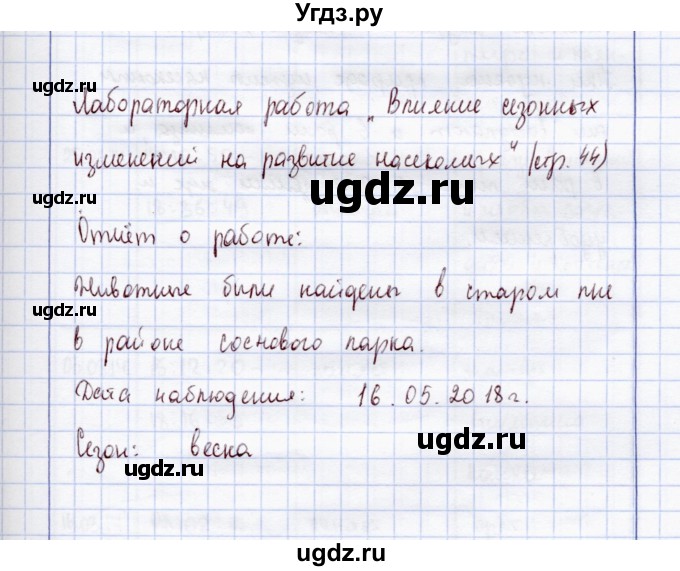 Угдз.ру
ugdz.ru
Лабораторная работа „Влияние сезонных
ugdz.ru
изменений на развитие насекомых" (стр. 44)
ugdz.ru
Отчёт о работе:
Животные были найдены в старом пне
ugdz.ru
в районе соснового парка.
Дата наблюдения: 16.05.2018 г.
ugdz.ru
Сезон: весна
ugdz.ru
ugdz.ru